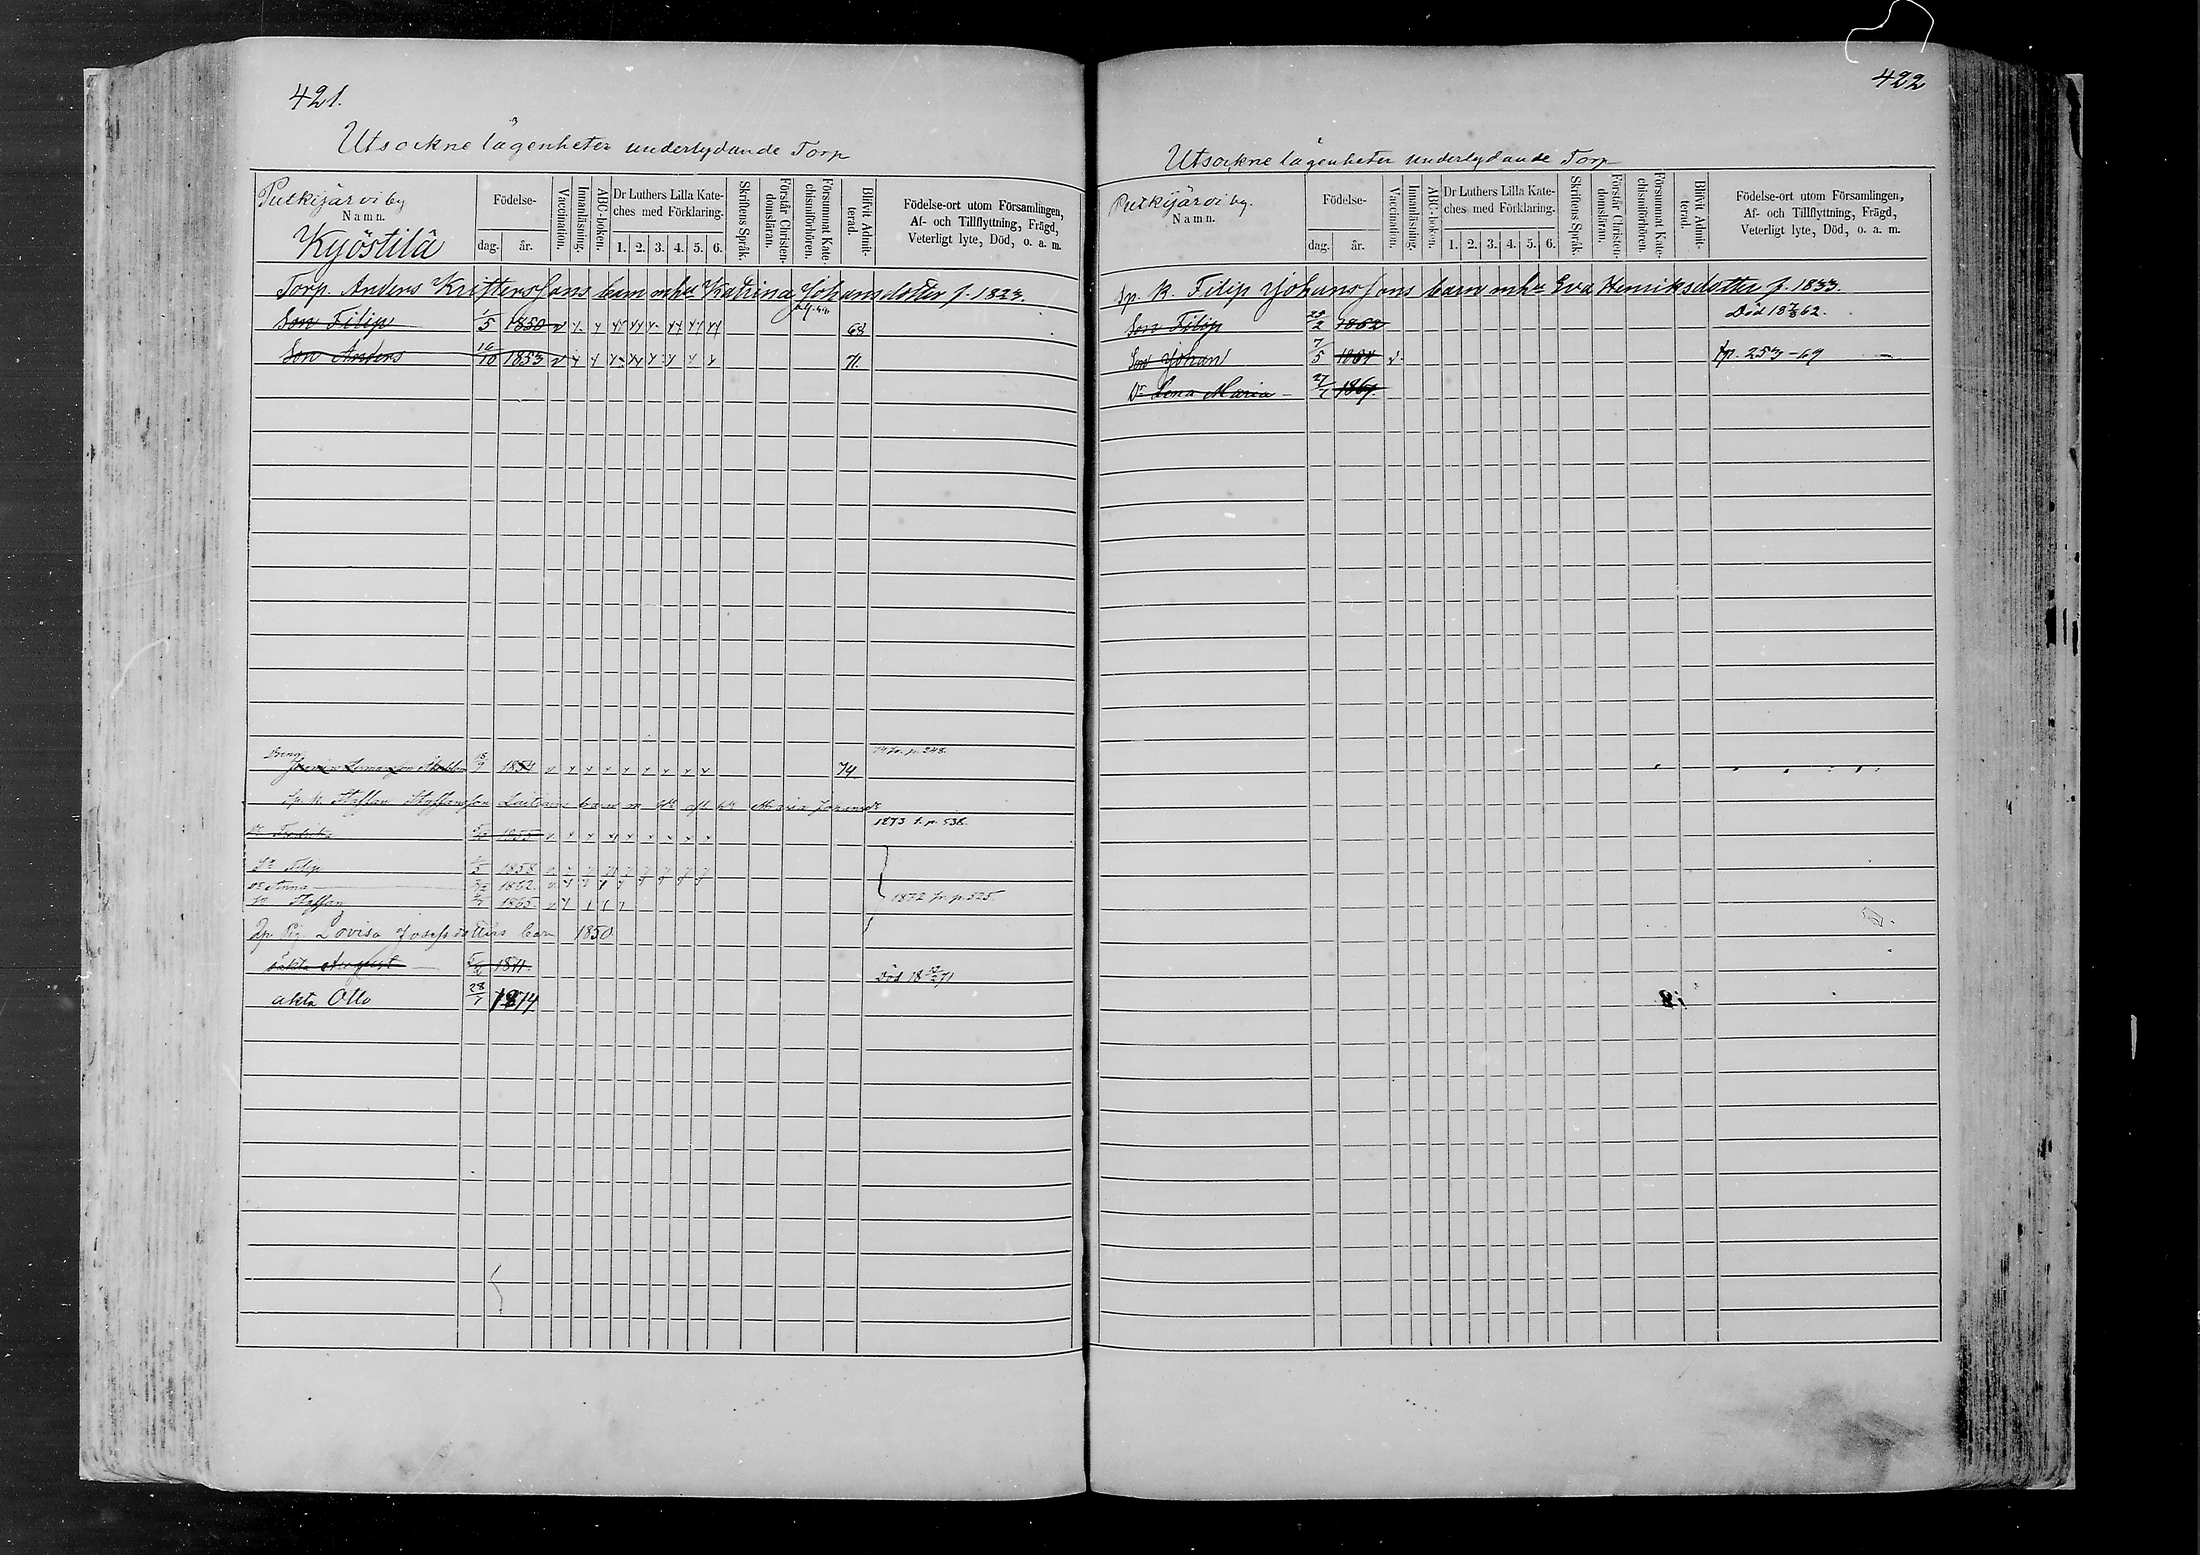 421.
Utsockne lägenheter underlydande Torp
Putkijärvi by
Namn.
Kyöstilä
Födelse-
dag.
år.
Vaccination.
Innanläsning.
ABC-boken.
Dr Luthers Lilla Kate-
ches med Förklaring.
1. 2. 3. 4. 5. 6.
Skriftens Språk.
Förstår Christen-
domsläran.
Försummat Kate-
chismiförhören.
Blifvit Admit-
terad.
Födelse-ort utom Församlingen,
Af- och Tillflyttning, Frägd,
Veterligt lyte, Död, o. a. m.
Torp. Anders Kristerssons barn m h u Katrina Johansdotter f. 1823.
Son Filip 1/5 1850 68
Son Anders 16/10 1853 71.
1854 74. p. 248.
Sp. k. Staffan Staffansson barn m Maria
Dr Fredrika 1855 1873 f. p. 538.
Sn Filip 1858
Dr Anna 1862.
Sn Staffan 1865. 1872 fr. p. 525.
Lovisa Josefsdotters barn 1850
oäkta August 1871. Död 18 71
äkta Otto 28/7 1874
422
Utsockne lägenheter underlydande Torp
Putkijärvi by.
Namn.
Födelse-
dag.
år.
Vaccination.
Innanläsning.
ABC-boken.
Dr Luthers Lilla Kate-
ches med Förklaring.
1. 2. 3. 4. 5. 6.
Skriftens Språk.
Förstår Christen-
domsläran.
Försummat Kate-
chismiförhören.
Blifvit Admit-
terad.
Födelse-ort utom Församlingen,
Af- och Tillflyttning, Frägd,
Veterligt lyte, Död, o. a. m.
Sp. k. Filip Johanssons barn m h u Eva Henriksdotter f. 1833.
Son Filip 1862 Död 18 62.
Son Johan 7/5 1864 p. 253-69
Dr Lena Maria 1867.